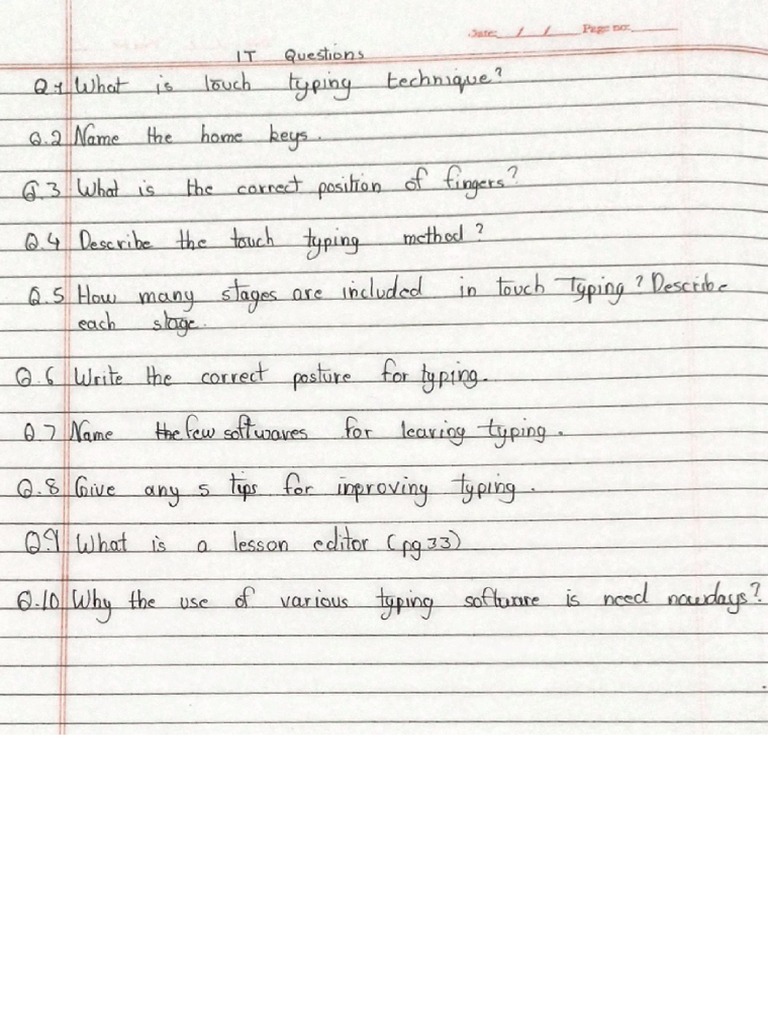 Date: / / Page no:
IT Questions
Q.1 What is touch typing technique?
Q.2 Name the home keys.
Q.3 What is the correct position of fingers?
Q.4 Describe the touch typing method?
Q.5 How many stages are included in touch Typing? Describe
each stage.
Q.6 Write the correct posture for typing.
Q.7 Name the few softwares for learing typing.
Q.8 Give any 5 tips for inproving typing.
Q.9 What is a lesson editor (pg 33)
Q.10 Why the use of various typing software is need nowdays?